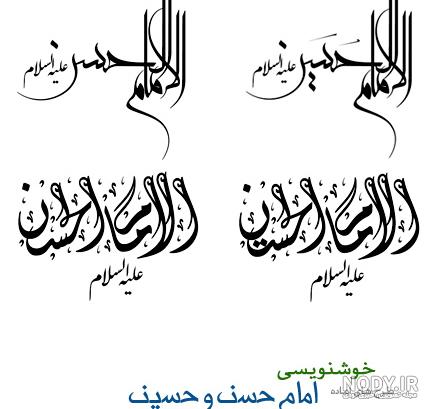 الامام حسین علیه السلام
الامام حسن علیه السلام
الامام الحسین
علیه السلام
الامام الحسن
علیه السلام
خوشنویسی
امام حسن و حسین
NODY.IR